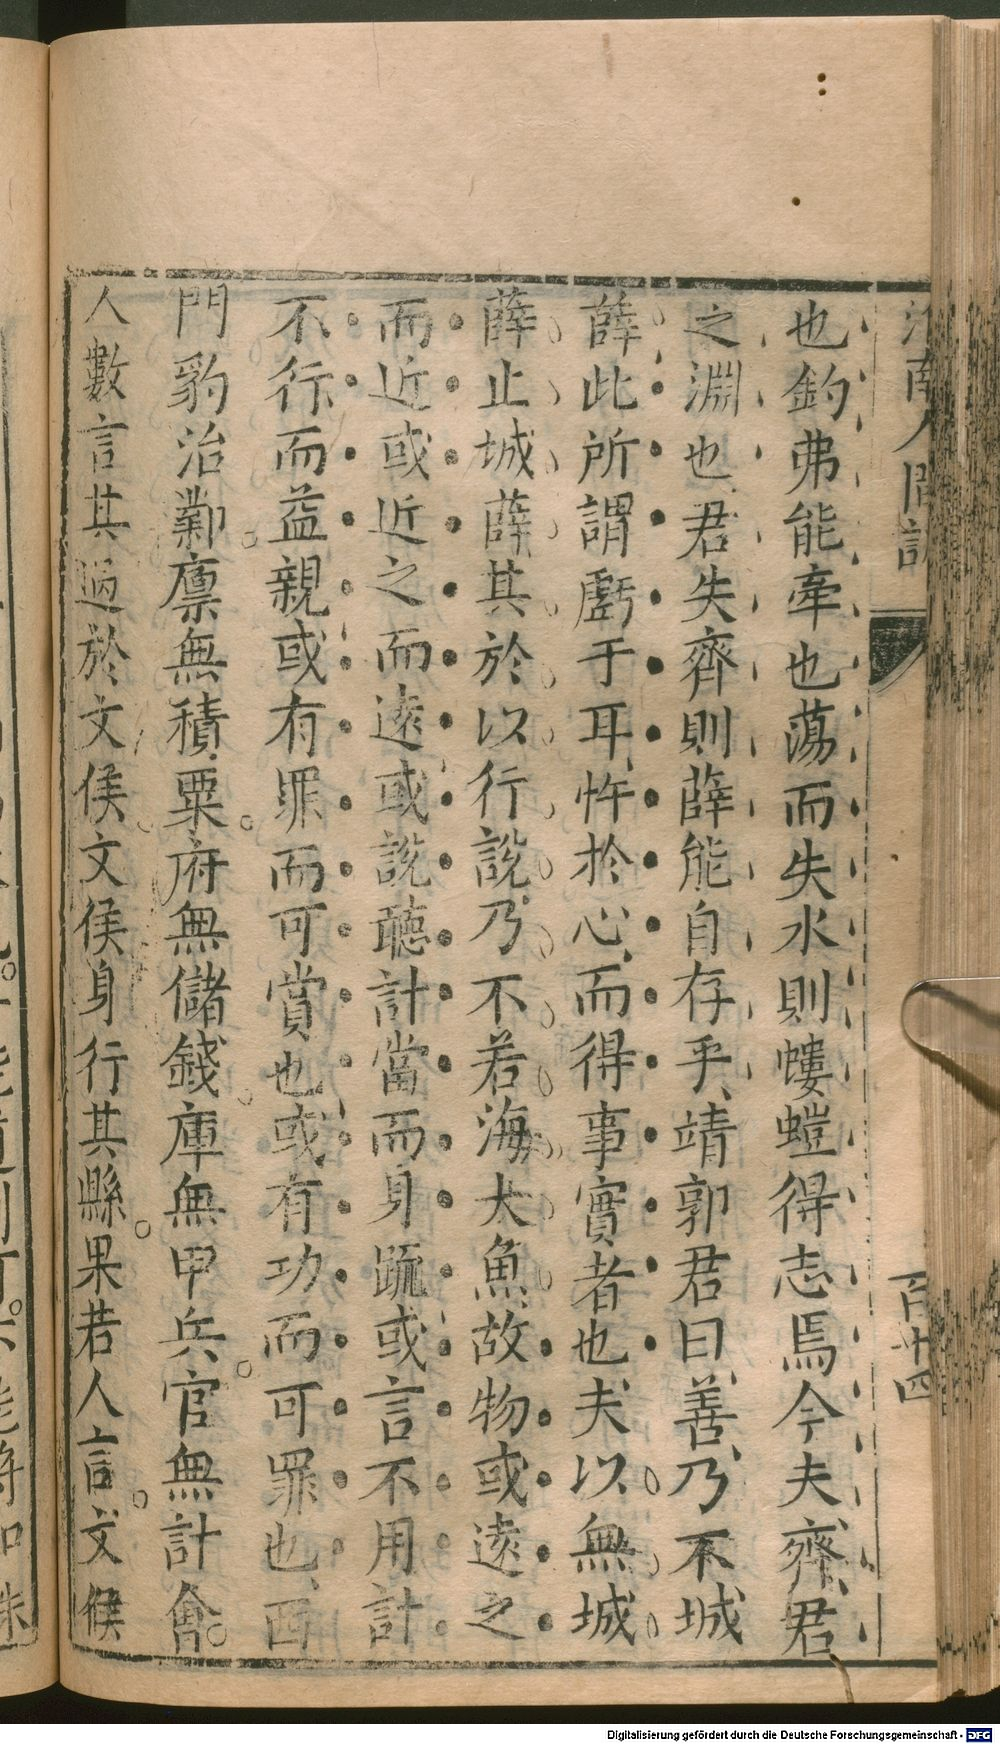 淮南人間訓
百十四
也釣弗能牽也蕩而失水則螻螘得志焉今夫齊君
之淵也君失齊則薛能自存乎靖郭君曰善乃不城
薛此所謂虧于耳忤於心而得事實者也夫以無城
薛止城薛其於以行說乃不若海大魚故物或遠之
而近或近之而遠或說聽計當而身疏或言不用計
不行而益親或有罪而可賞也或有功而可罪也西
門豹治鄴廪無積粟府無儲錢庫無甲兵官無計會
人數言其過於文侯文侯身行其縣果若人言文侯
Digitalisierung gefördert durch die Deutsche Forschungsgemeinschaft - DFG